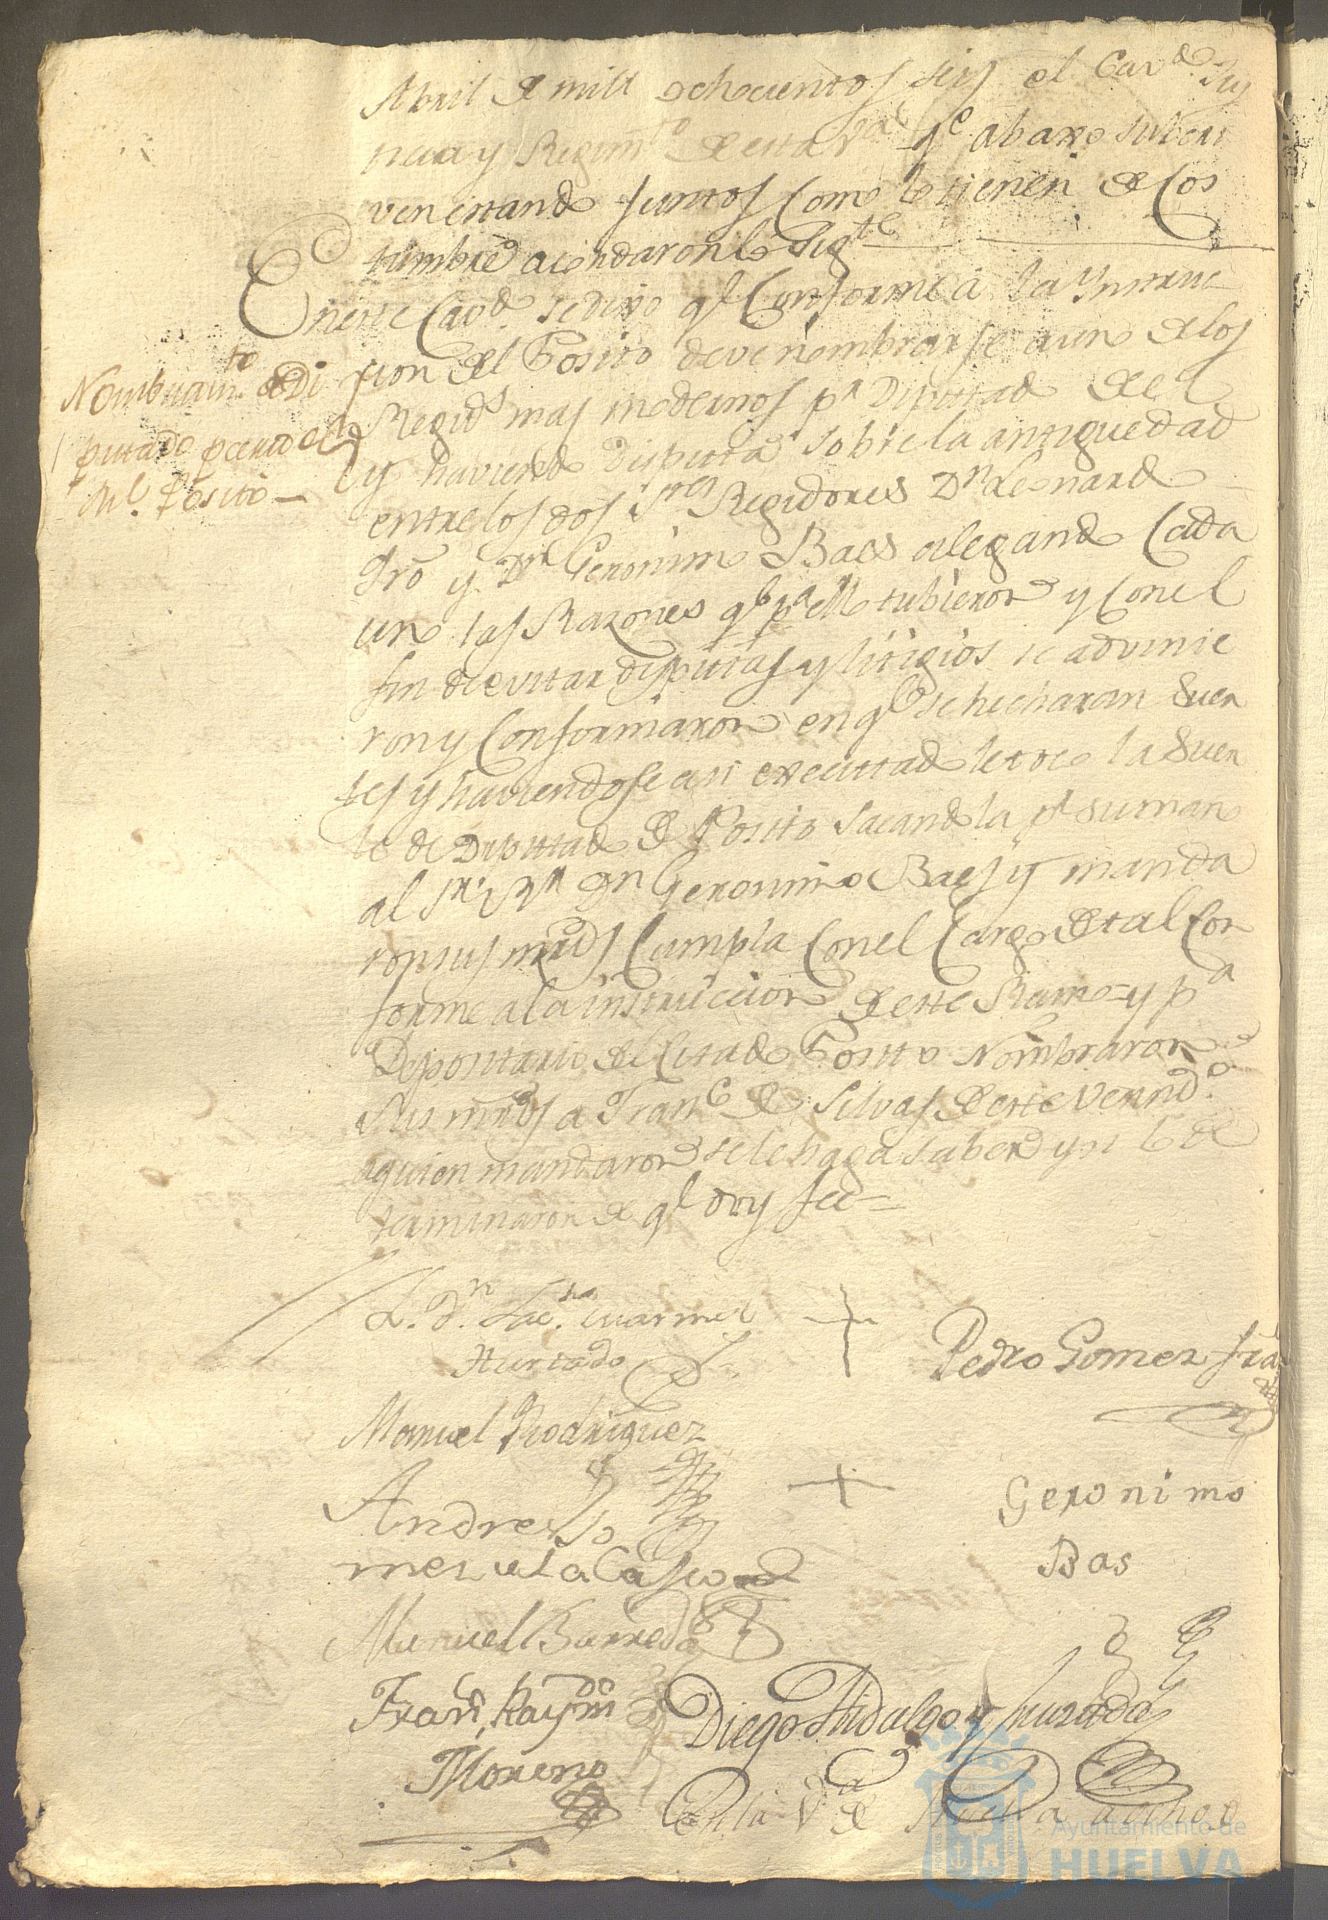 Abril de mill ochocientos seis el Cav.do Jus
ticia y Regim.to de esta V.a q.e abaxo subcri
ven estando juntos como lo tienen de Cos
tumbre acordaron lo sig.te
En este Cav.do se dixo q.e Conforme à la Ynstruc
cion del Posito deve nombrarse a uno de los
Regid.s mas modernos p.a Diputado de el
y haviendo disputa sobre la antiguedad
entre los dos S.res Regidores D.n Leonardo
y D.n Geronimo Baes alegando Cada
uno las Razones q.e p.a ello tubieron y Con el
fin de evitar disputas y litigios se advinie
ron y Conformaron en q.e se hecharan Suer
tes y haviendose asi executado le toco la Suer
te de Diputado de Posito Sacandola p.r su man
al S.r D.n Geronimo Baes y manda
ron sus mrds Cumpla Con el Cargo de tal Con
forme a la instruccion de este Ramo = y p.a
Depositario del Citado Posito Nombraron
Sus mrds a Fran.co de Silvas de este Vecind.o
a quien mandaron se le haga saber y asi lo de
terminaron de q.e doy fee =
Nombram.to de Di
putado
del Posito
L. D.n
Hurtado
Pedro Gomez
Manuel Rodriguez
Geronimo
Bas
Andres Go
mez de la Casco
Manuel Barreda
Fran.co Raym.do
Moreno
Diego Hidalgo y Hurtado
En la V.a de Huelva a ocho d
Ayuntamiento de
HUELVA